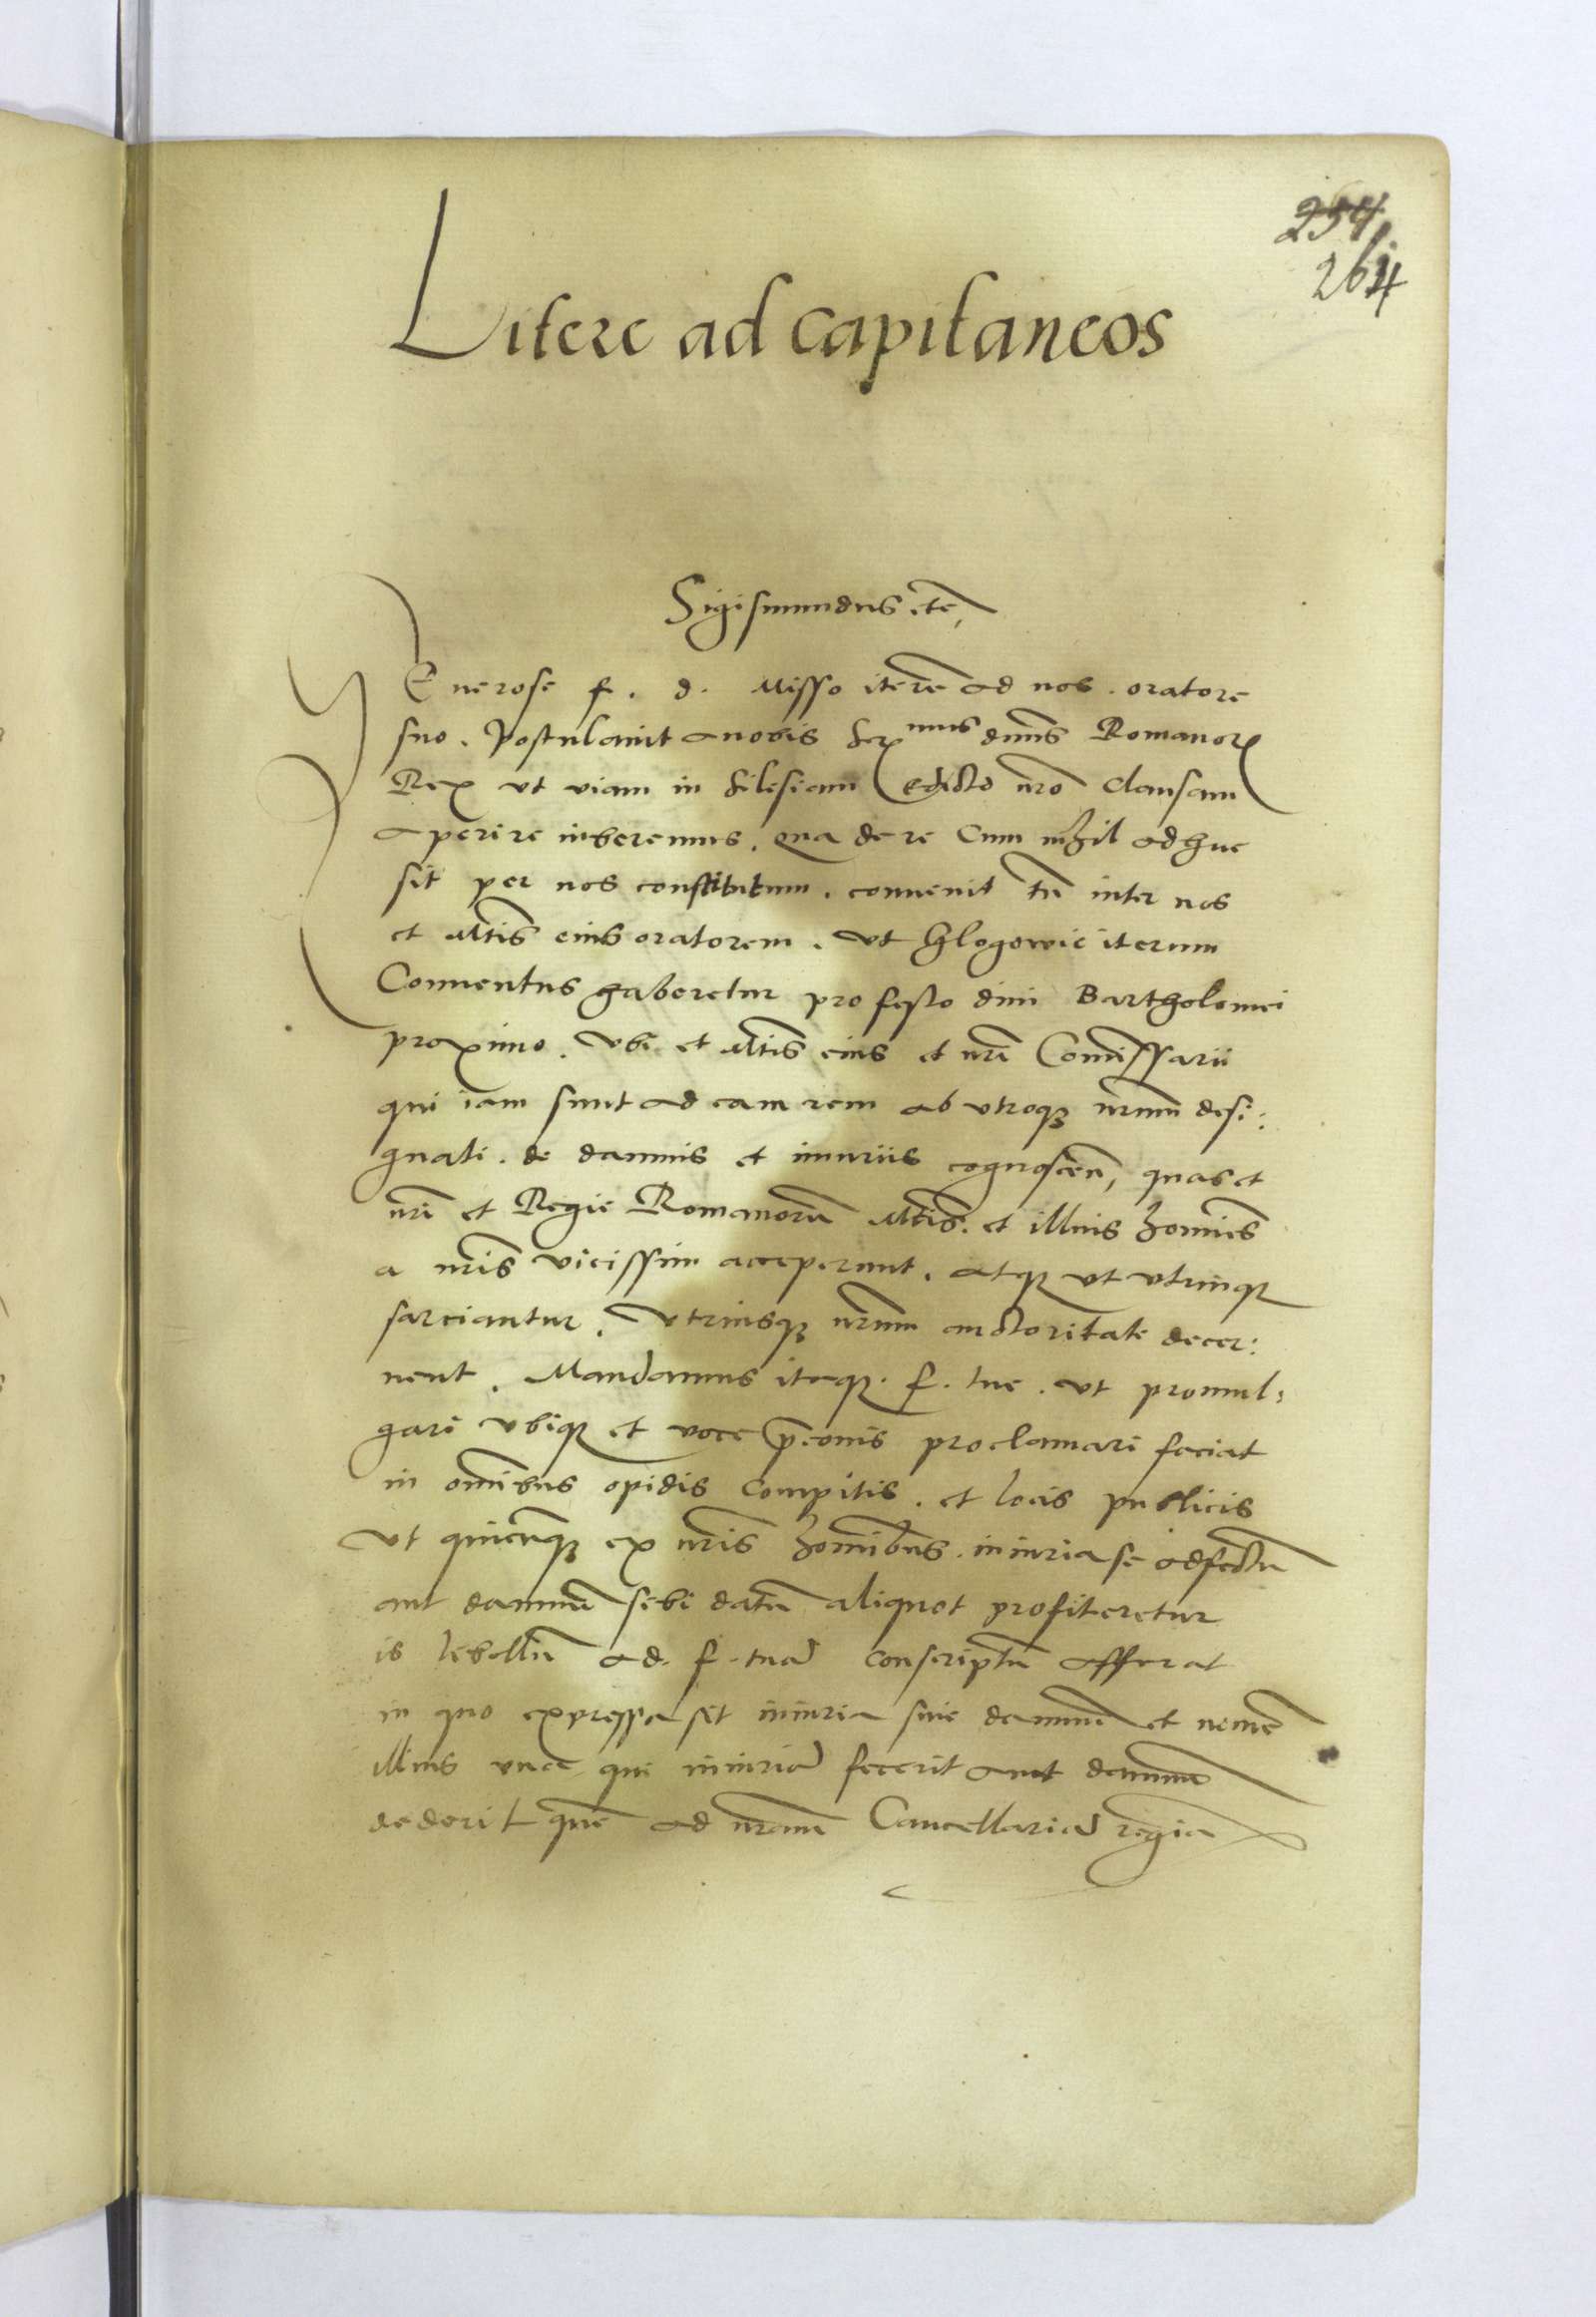 254
264
Litere ad capitaneos
Sigismundus etc̃,
GEnerose f. d. Misso iterũ ad nos. oratore
suo. Postulavit a nobis Serᵐᵘˢ dnus Romanorꝝ
Rex ut viam in Silesiam edicto nr̃o clausam
aperire iuberemus. qua de re Cum nihil adhuc
sit per nos constitutum. convenit tñ inter nos
et Mtis eius oratorem. Ut Glogovie iterum
Conventus haberetur pro festo divi Bartholomei
proximo. Ubi et Mtis eius et nr̃i Comissarii
qui iam sunt ad eam rem ab utroqꝫ nr̃um desi:
gnati. de damnis et iniuriis cognoscen, quas et
nr̃i et Regie Romanorũ Mtis. et illius homĩes
a nr̃is vicissim acceperunt. atqꝫ ut utrinqꝫ
sarciantur. Utriusqꝫ nr̃um auctoritate decer:
nent. Mandamus itaqꝫ. f. tue. ut promul:
gari ubiqꝫ et voce p̃conis proclamari faciat
in omĩbus opidis compitis. et locis publicis
Ut quicũqꝫ ex nr̃is homĩbus. iniuria se adfectũ
aut damnũ sibi datũ aliquot profiteretur
is libellũ ad. f. tuã conscriptũ afferat
in quo expressa sit iniuria sive damnũ et nomẽ
illius una qui iniuriã fecerit aut damnũ
dederit quẽ ad nr̃am Cancellariã regiã